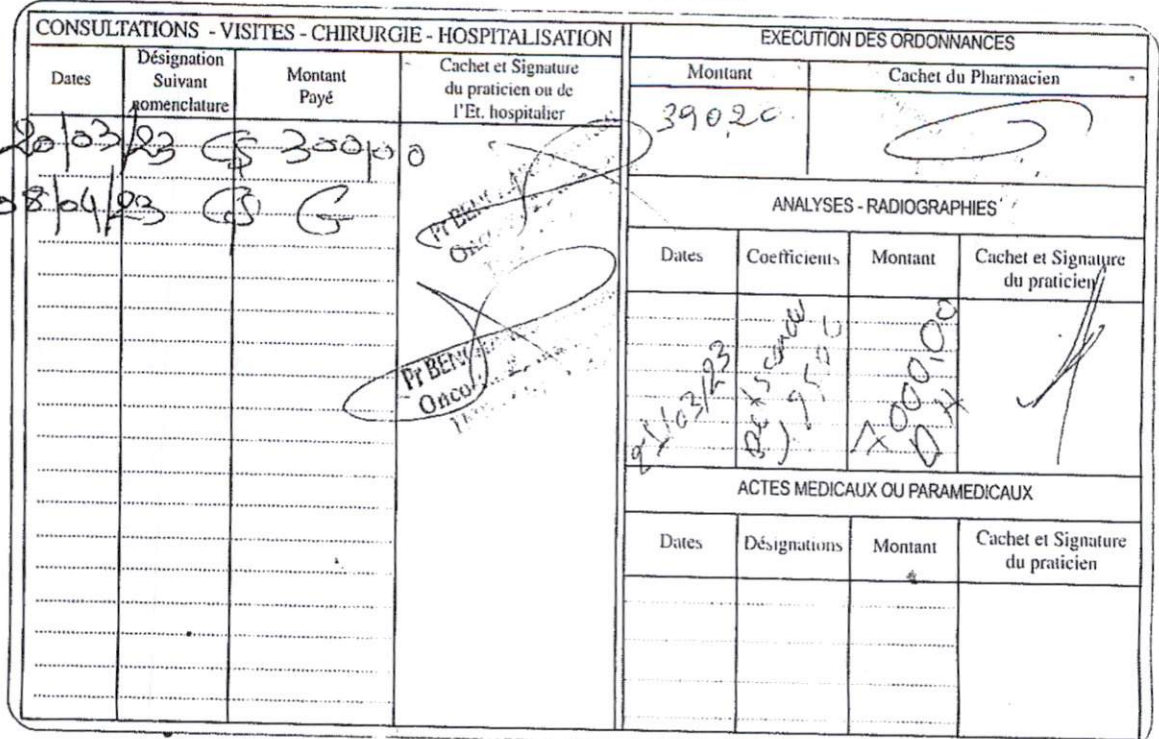 CONSULTATIONS - VISITES - CHIRURGIE - HOSPITALISATION
Dates
Désignation
Suivant
nomenclature
Montant
Payé
Cachet et Signature
du praticien ou de
l'Et. hospitalier
20/03/23 CS 300,00
Pr BEN
Onco
08/04/23 CS G
Pr BEN
Onco
EXECUTION DES ORDONNANCES
Montant
Cachet du Pharmacien
390,20
ANALYSES - RADIOGRAPHIES
Dates
Coefficients
Montant
Cachet et Signature
du praticien
21/03/23
DH
ACTES MEDICAUX OU PARAMEDICAUX
Dates
Désignations
Montant
Cachet et Signature
du praticien